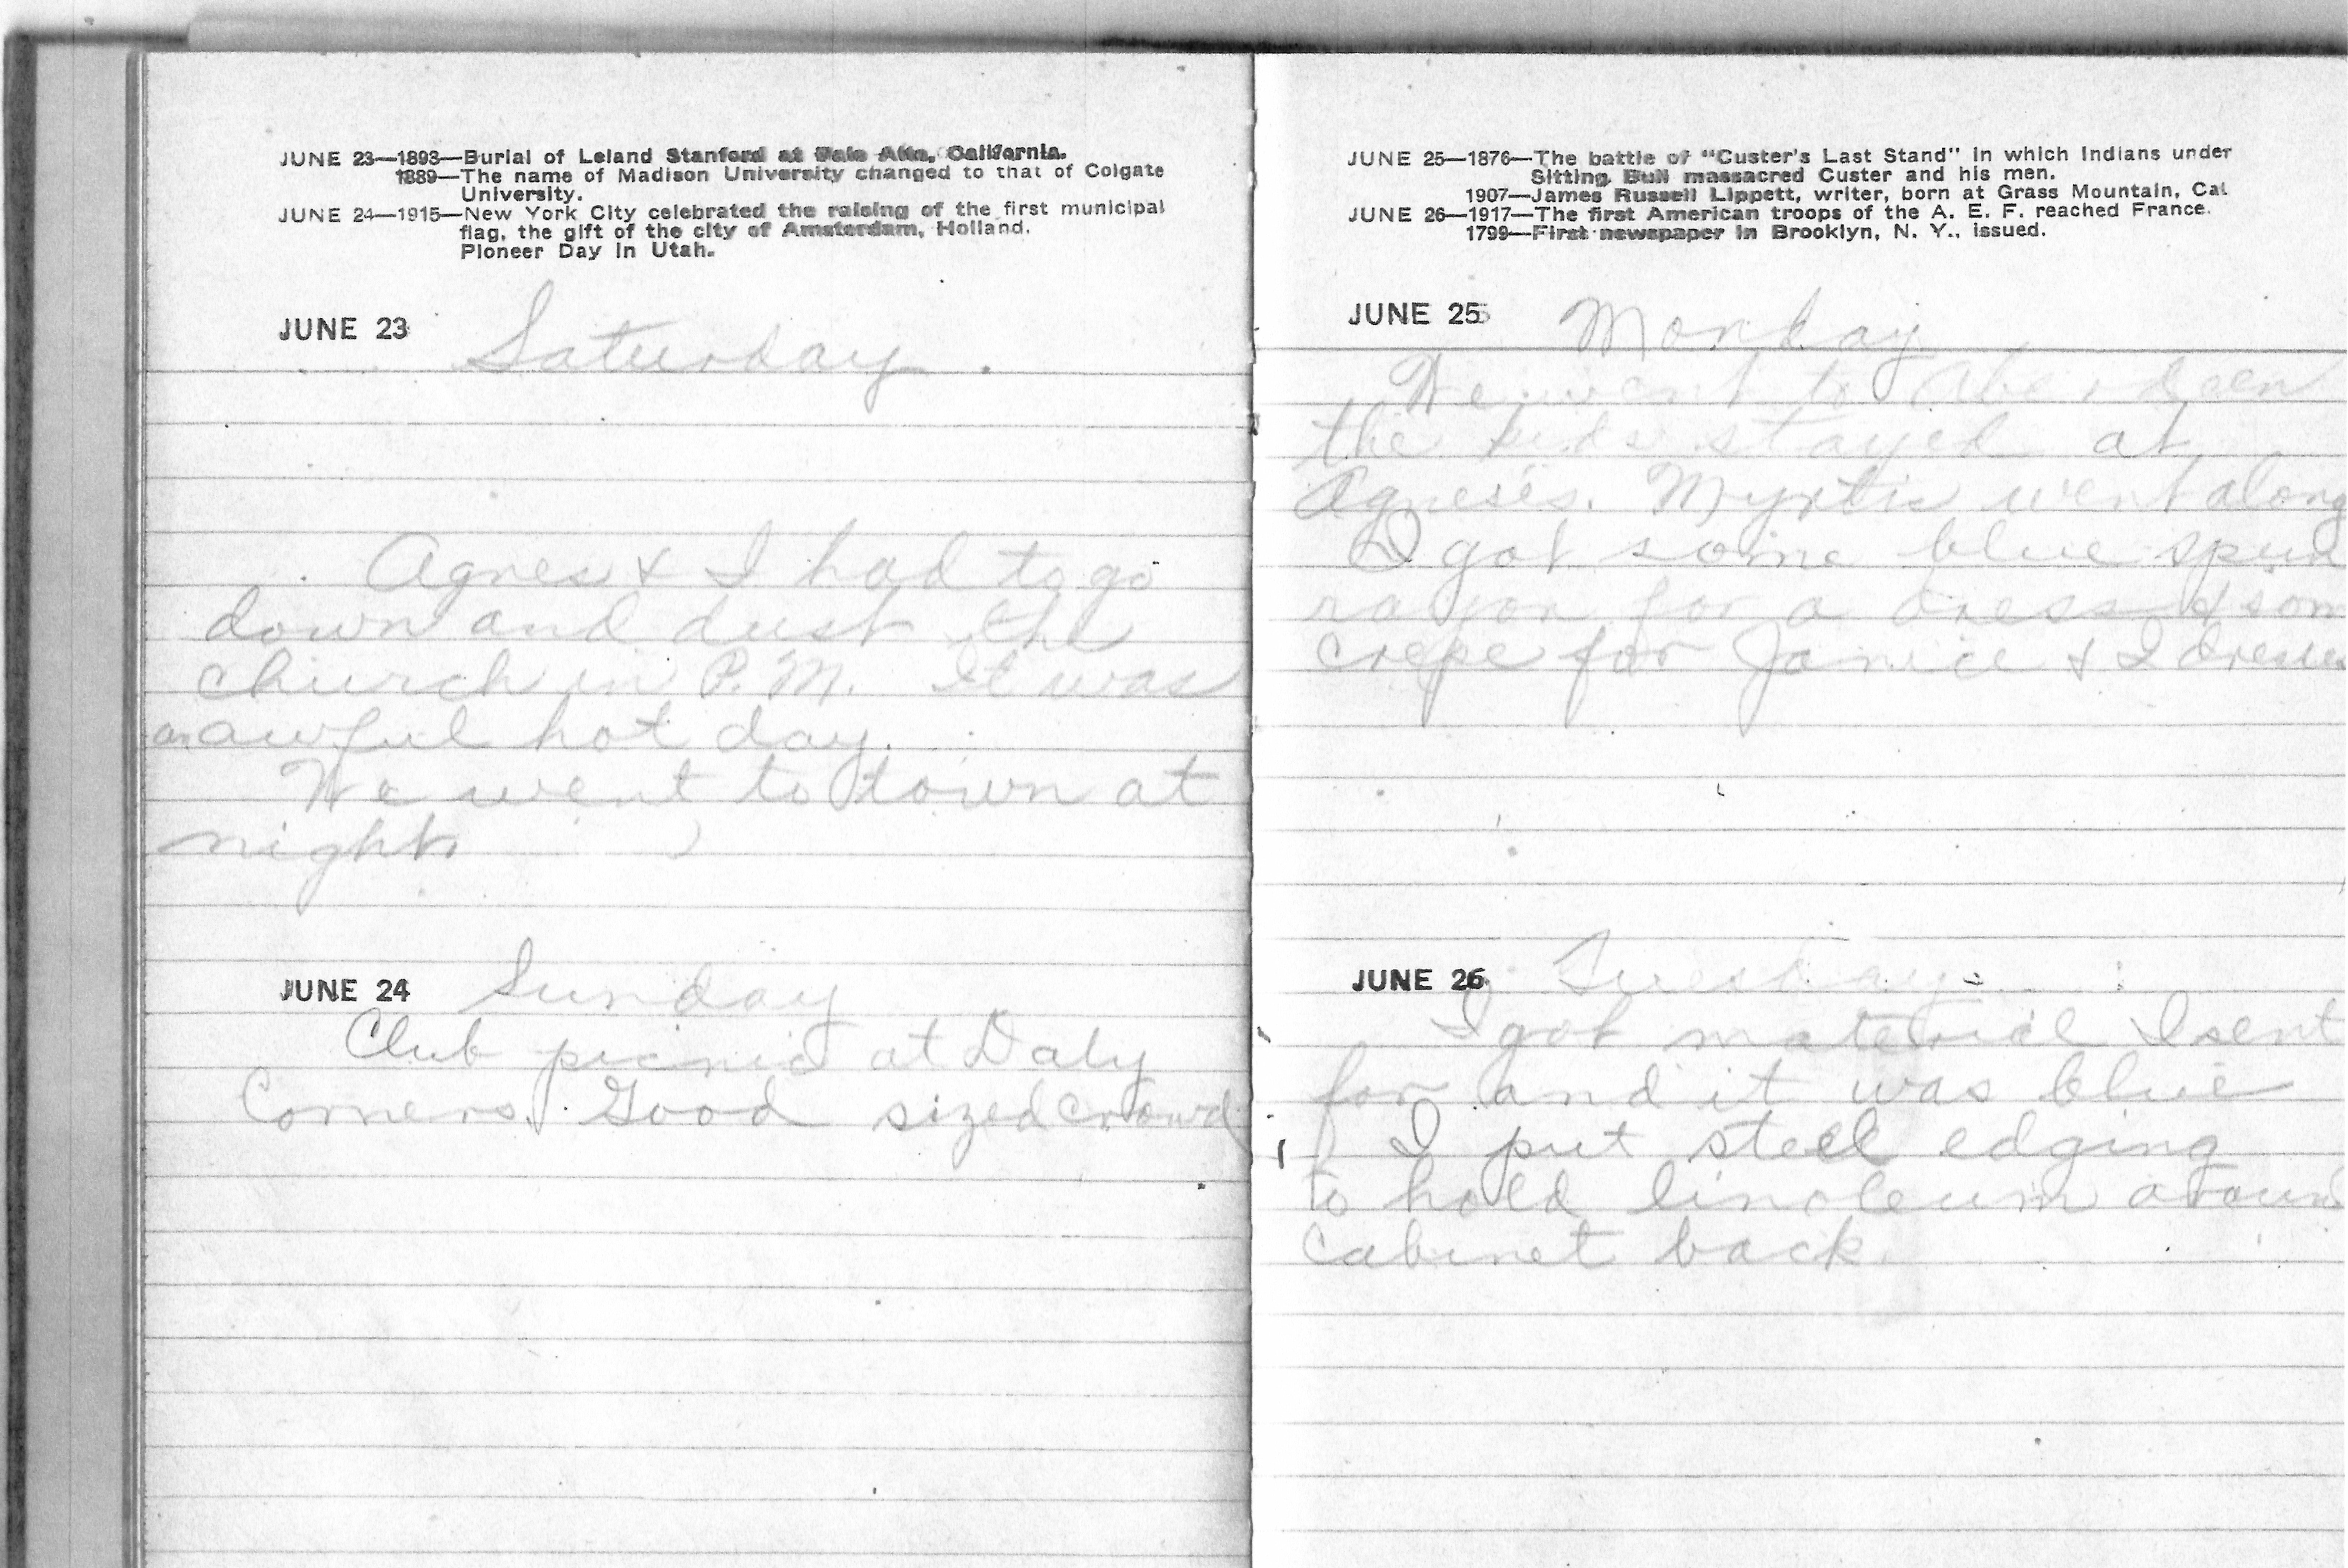 JUNE 23—1893—Burial of Leland Stanford at Palo Alto, California.
1889—The name of Madison University changed to that of Colgate
University.
JUNE 24—1915—New York City celebrated the raising of the first municipal
flag, the gift of the city of Amsterdam, Holland.
Pioneer Day in Utah.
JUNE 23 Saturday.
Agnes & I had to go
down and dust the
church in P.M. It was
an awful hot day.
We went to town at
night.
JUNE 24 Sunday
Club picnic at Daly
Corners. Good sized crowd
JUNE 25—1876—The battle of "Custer's Last Stand" in which Indians under
Sitting Bull massacred Custer and his men.
1907—James Russell Lippett, writer, born at Grass Mountain, Cal.
JUNE 26—1917—The first American troops of the A. E. F. reached France.
1799—First newspaper in Brooklyn, N. Y., issued.
JUNE 25 Monday
We went to Aberdeen
the kids stayed at
Agnes's. Myrtis went along
I got some blue spun
rayon for a dress & som
crepe for Janice & I dresses
JUNE 26 Tuesday
I got material I sent
for and it was blue
I put steel edging
to hold linoleum around
cabinet back.